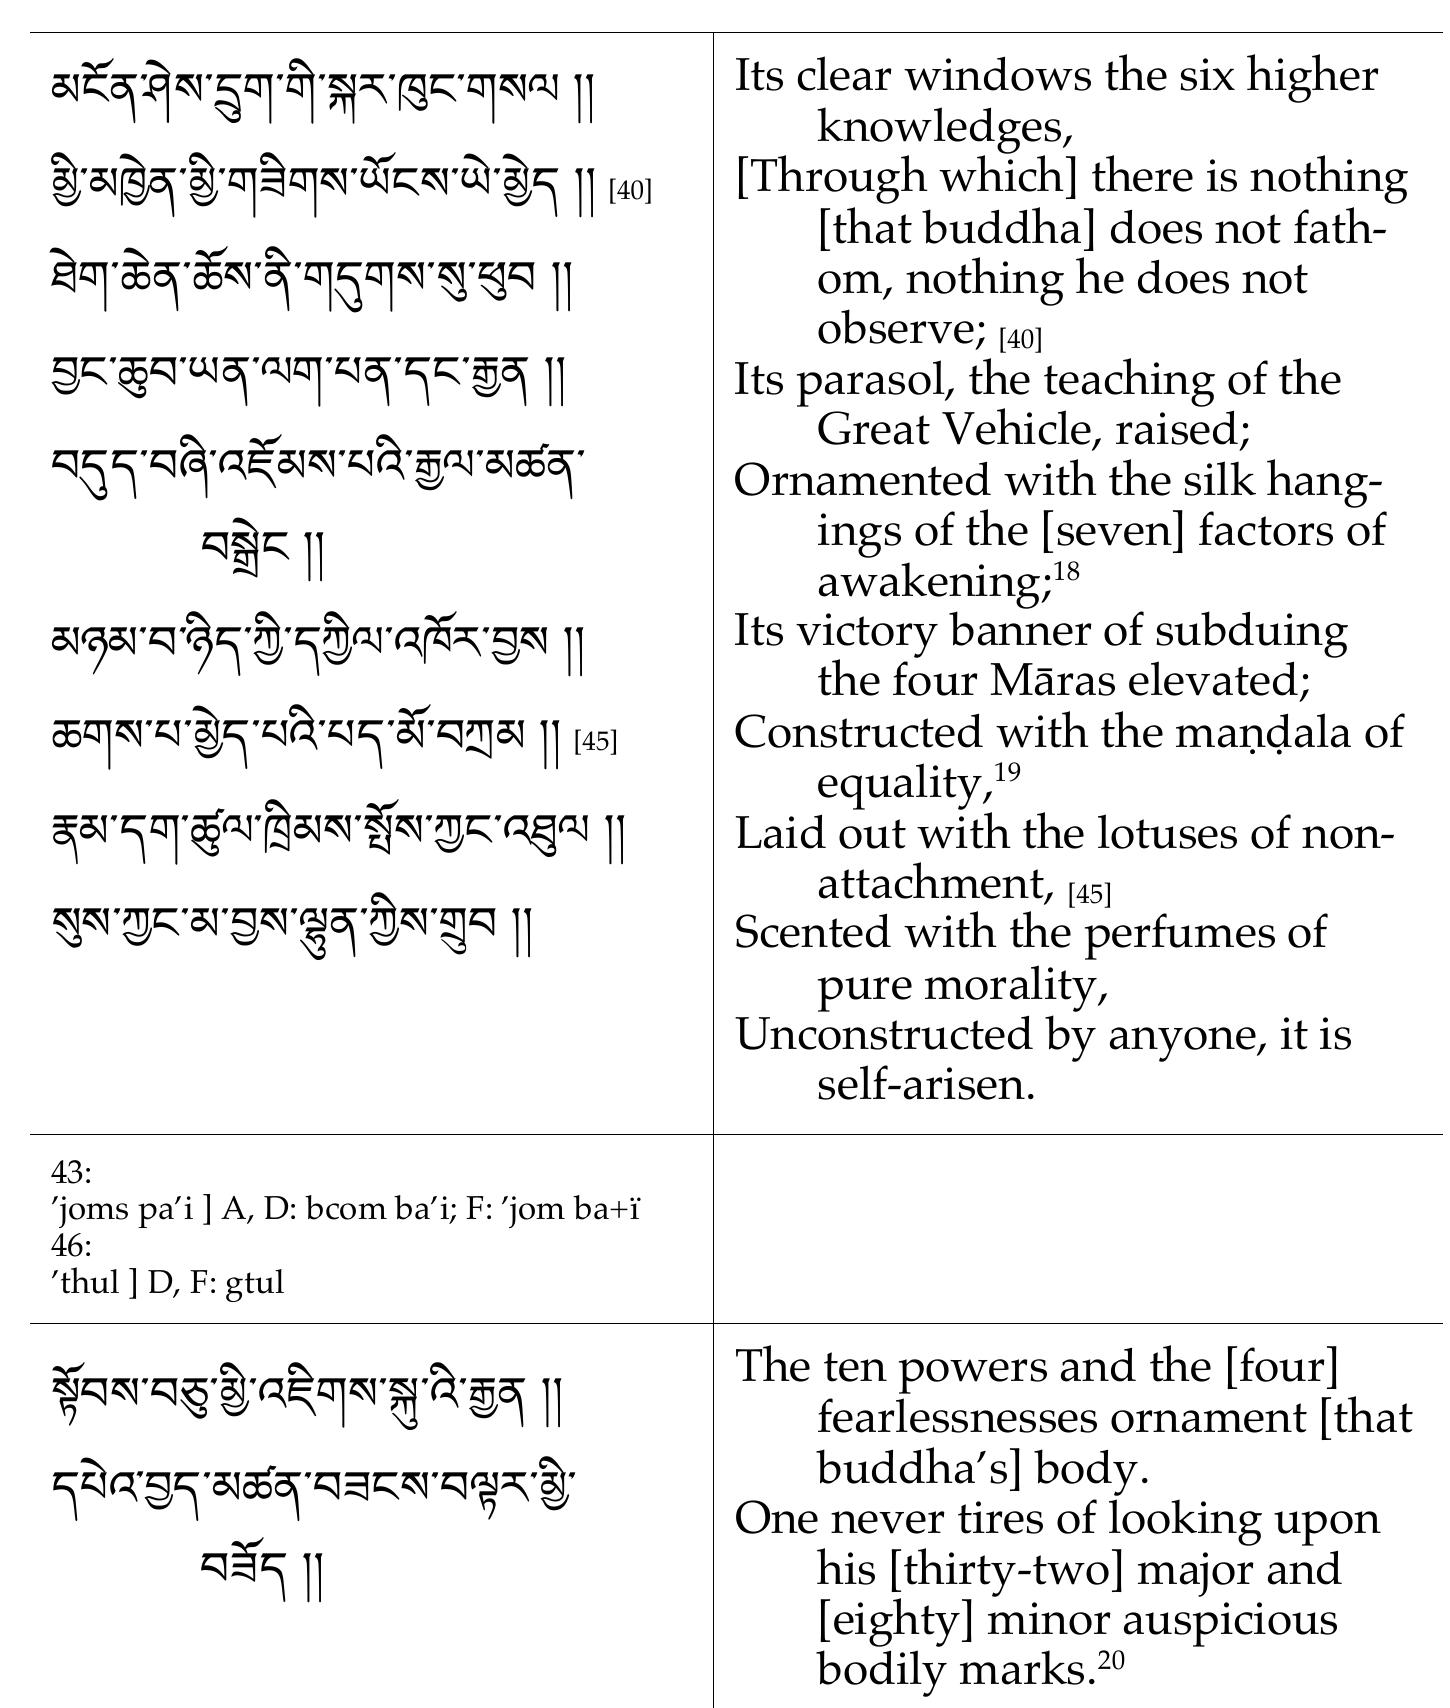 མངོན་ཤེས་དྲུག་གི་སྐར་ཁུང་གསལ །།
མྱི་མཁྱེན་མྱི་གཟིགས་ཡོངས་ཡེ་མྱེད །། [40]
ཐེག་ཆེན་ཆོས་ནི་གདུགས་སུ་ཕུབ །།
བྱང་ཆུབ་ཡན་ལག་པན་དང་རྒྱན །།
བདུད་བཞི་འཇོམས་པའི་རྒྱལ་མཚན་
བསྒྲེང །།
མཉམ་བ་ཉིད་ཀྱི་དཀྱིལ་འཁོར་བྱས །།
ཆགས་པ་མྱེད་པའི་པད་མོ་བཀྲམ །། [45]
རྣམ་དག་ཚུལ་ཁྲིམས་སྤོས་ཀྱང་འཐུལ །།
སུས་ཀྱང་མ་བྱས་ལྷུན་ཀྱིས་གྲུབ །།
Its clear windows the six higher
knowledges,
[Through which] there is nothing
[that buddha] does not fath-
om, nothing he does not
observe; [40]
Its parasol, the teaching of the
Great Vehicle, raised;
Ornamented with the silk hang-
ings of the [seven] factors of
awakening;18
Its victory banner of subduing
the four Māras elevated;
Constructed with the maṇḍala of
equality,19
Laid out with the lotuses of non-
attachment, [45]
Scented with the perfumes of
pure morality,
Unconstructed by anyone, it is
self-arisen.
43:
’joms pa’i ] A, D: bcom ba’i; F: ’jom ba+ï
46:
’thul ] D, F: gtul
སྟོབས་བཅུ་མྱི་འཇིགས་སྐུ་འི་རྒྱན །།
དཔེའ་བྱད་མཚན་བཟངས་བལྟར་མྱི་
བཟོད །།
The ten powers and the [four]
fearlessnesses ornament [that
buddha’s] body.
One never tires of looking upon
his [thirty-two] major and
[eighty] minor auspicious
bodily marks.20